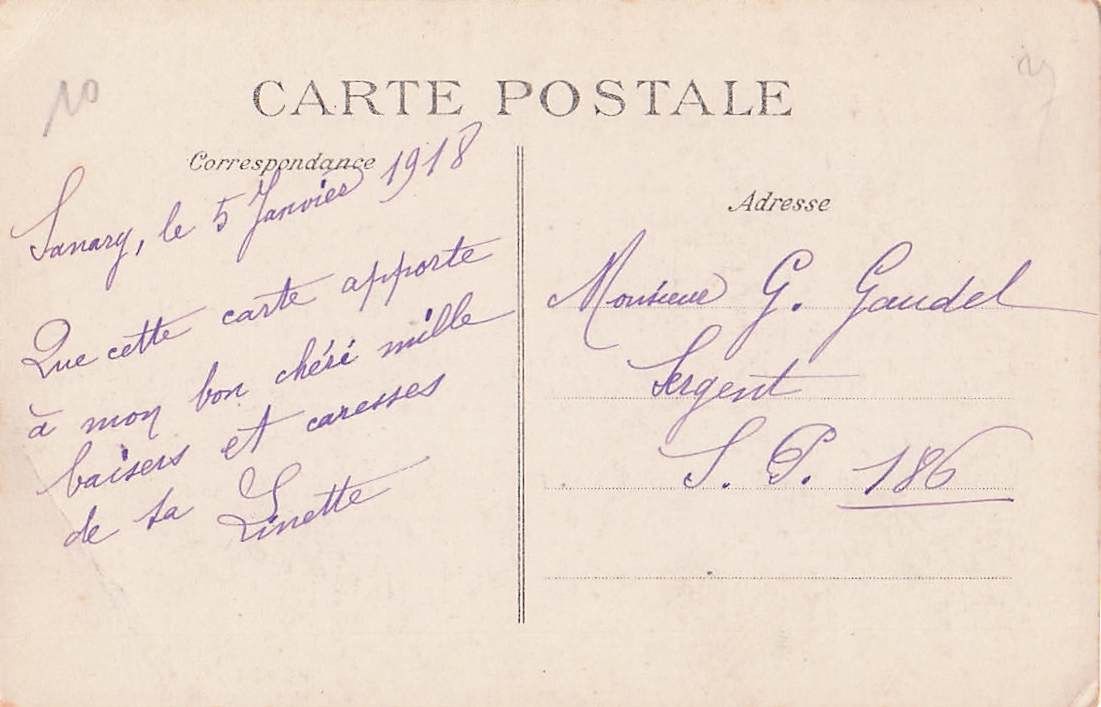 10
CARTE POSTALE
Correspondance
Sanary, le 5 Janvier 1918
Que cette carte apporte
à mon bon chéri mille
baisers et caresses
de ta Linette
Adresse
Monsieur G. Gaudel
Sergent
S. P. 186